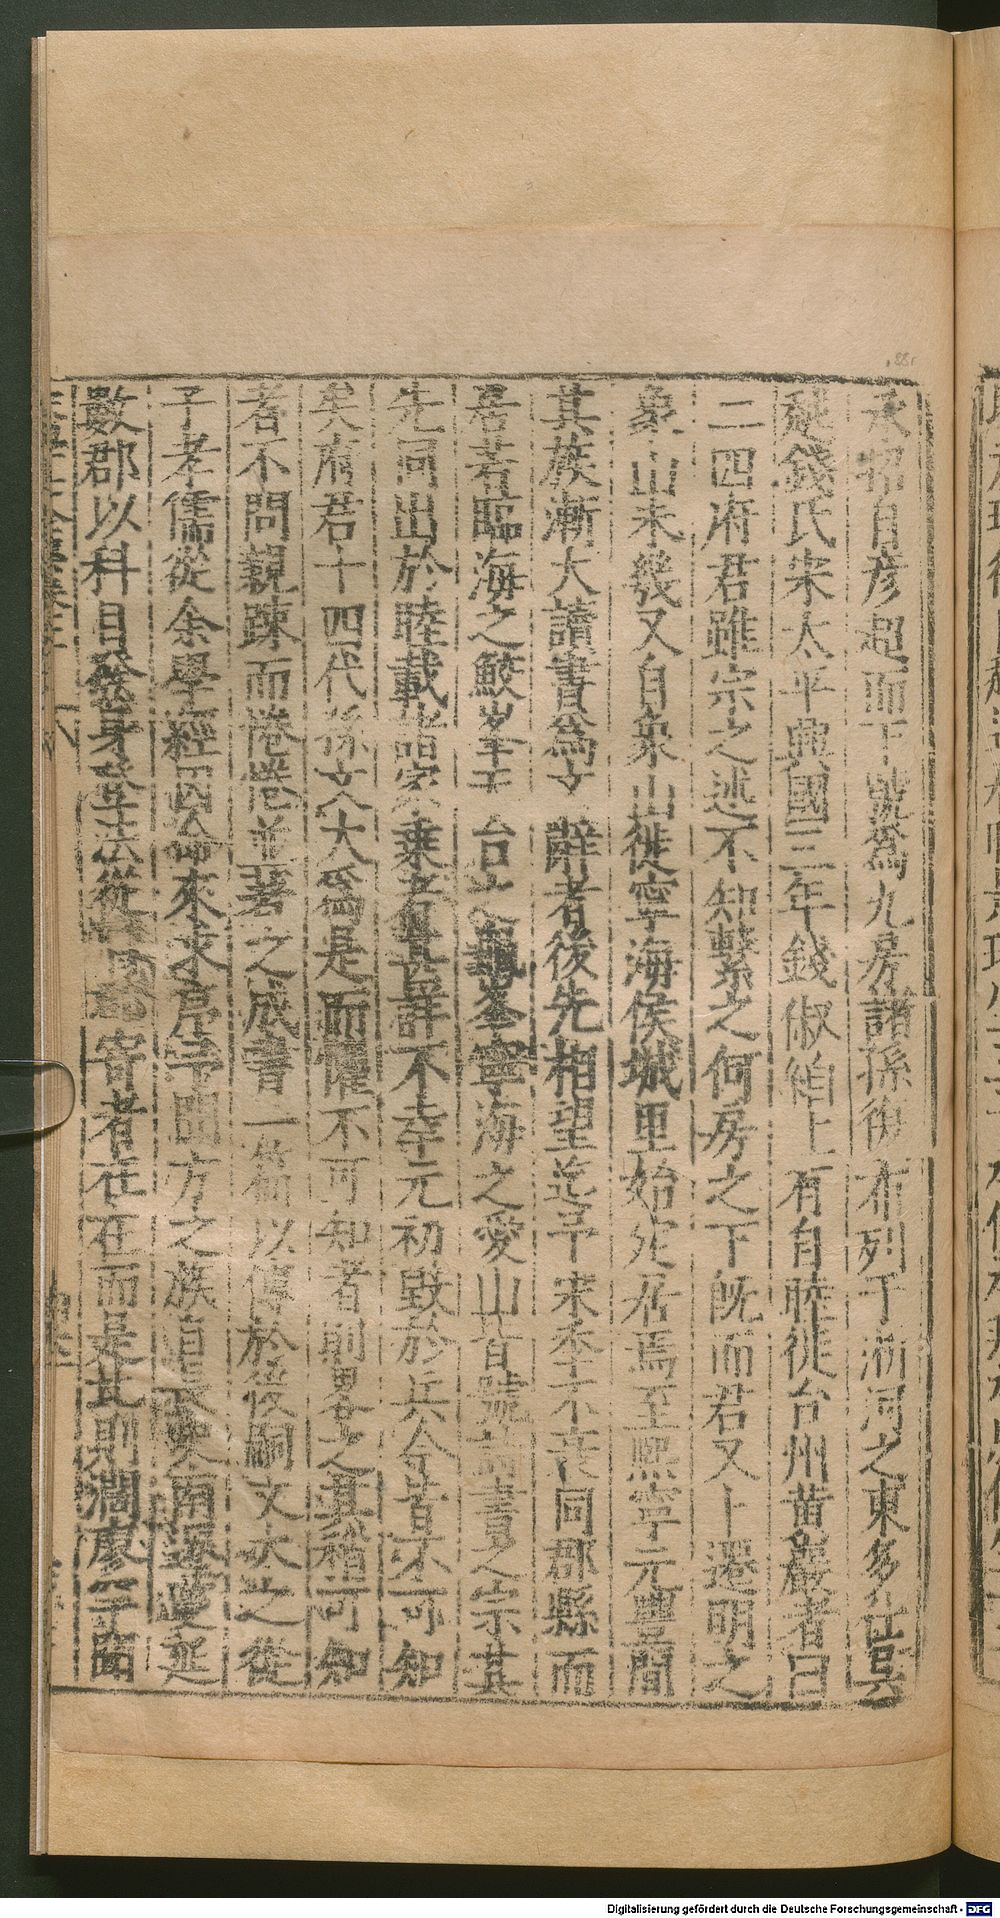 承招自彥超而下號爲九房諸孫衍布列于浙河之東多仕吳
越錢氏宋太平興國三年錢俶納土有自睦徙台州黃巖者曰
二四府君雖宗之述不知繫之何房之下旣而君又卜遷明之
象山未幾又自象山徙寧海侯城里始定居焉至熙寧元豐間
其族漸大讀書爲文辭者後先相望迄乎宋季不衰同郡縣而
居若臨海之鮫峯天台之龜峯寧海之愛山皆號詩書之宗其
先同出於睦載諸家乘者甚詳不幸元初毀於兵今皆不可知
矣府君十四代孫文大爲是而懼不可知者則畧之其稍可知
者不問親疎而惓惓並著之成書一篇以傳於後嗣文大之從
子孝儒從余學經因命來求序予聞方之族自長史南渡蔓延
數郡以科目發身登法從 寄者在在而是此則澗廖子晦
Digitalisierung gefördert durch die Deutsche Forschungsgemeinschaft - DFG